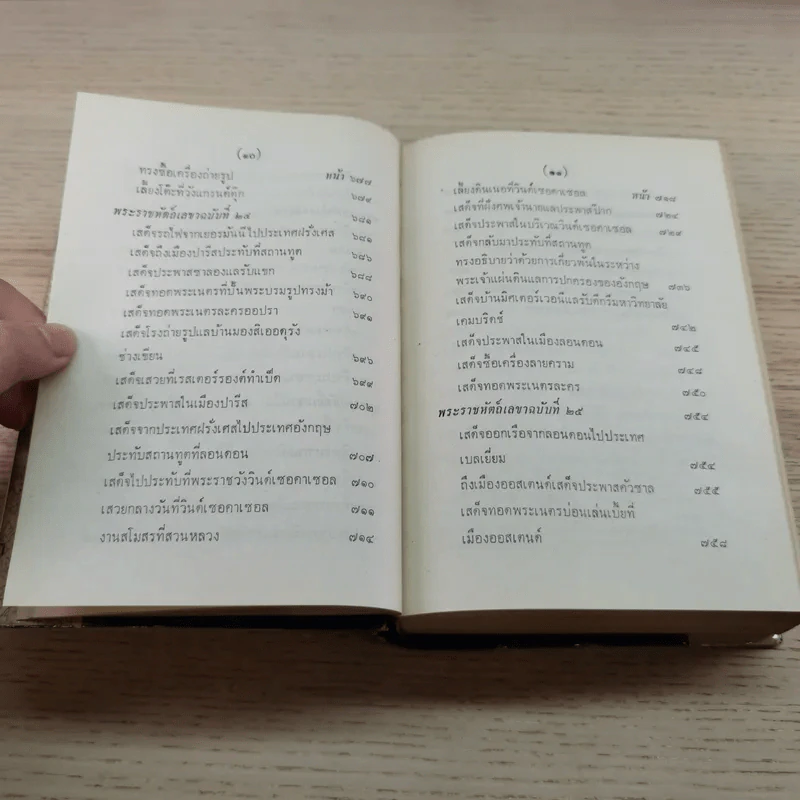 (๑๐)
ทรงซื้อเครื่องถ่ายรูป หน้า ๖๗๗
เลี้ยงโต๊ะที่วังแกรนด์ดุ๊ก ๖๗๙
พระราชหัตถ์เลขาฉบับที่ ๒๔ ๖๘๑
เสด็จรถไฟจากเยอรมันนีไปประเทศฝรั่งเศส ๖๘๑
เสด็จถึงเมืองปารีสประทับที่สถานทูต ๖๘๖
เสด็จประพาสซาลองแลรับแขก ๖๘๘
เสด็จทอดพระเนตรที่ปั้นพระบรมรูปทรงม้า ๖๙๐
เสด็จทอดพระเนตรละครออปรา ๖๙๑
เสด็จโรงถ่ายรูปแลบ้านมองสิเออดุรัง
ช่างเขียน ๖๙๖
เสด็จเสวยที่เรสเตอร์รองค์ทำเป็ด ๖๙๙
เสด็จประพาสในเมืองปารีส ๗๐๒
เสด็จจากประเทศฝรั่งเศสไปประเทศอังกฤษ
ประทับสถานทูตที่ลอนดอน ๗๐๗
เสด็จไปประทับที่พระราชวังวินด์เซอคาเซอล ๗๑๐
เสวยกลางวันที่วินด์เซอคาเซอล ๗๑๑
งานสโมสรที่สวนหลวง ๗๑๔
(๑๑)
เลี้ยงดินเนอที่วินด์เซอคาเซอล หน้า ๗๑๘
เสด็จที่ฝังศพเจ้านายแลประพาสป่าก ๗๒๔
เสด็จประพาสในบริเวณวินด์เซอคาเซอล ๗๒๙
เสด็จกลับมาประทับที่สถานทูต
ทรงอธิบายว่าด้วยการเกี่ยวพันในระหว่าง
พระเจ้าแผ่นดินแลการปกครองของอังกฤษ ๗๓๖
เสด็จบ้านมิศเตอร์เวอนีแลรับดีกรีมหาวิทยาลัย
เคมบริดช์ ๗๔๒
เสด็จประพาสในเมืองลอนดอน ๗๔๕
เสด็จซื้อเครื่องลายคราม ๗๔๘
เสด็จทอดพระเนตรละคร ๗๕๐
พระราชหัตถ์เลขาฉบับที่ ๒๕ ๗๕๔
เสด็จออกเรือจากลอนดอนไปประเทศ
เบลเยี่ยม ๗๕๔
ถึงเมืองออสเตนด์เสด็จประพาสคัวซาล ๗๕๕
เสด็จทอดพระเนตรบ่อนเล่นเบี้ยที่
เมืองออสเตนด์ ๗๕๘